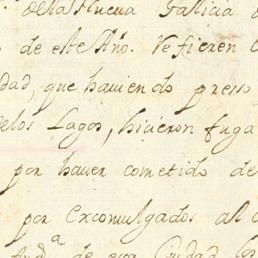 de la Nueva Galicia
de este Año. Refieren
dad, que haviendo preso
de los Lagos, hicieron fuga
por haver cometido de
por Excomulgados al
Aud.ª de esa Ciudad los